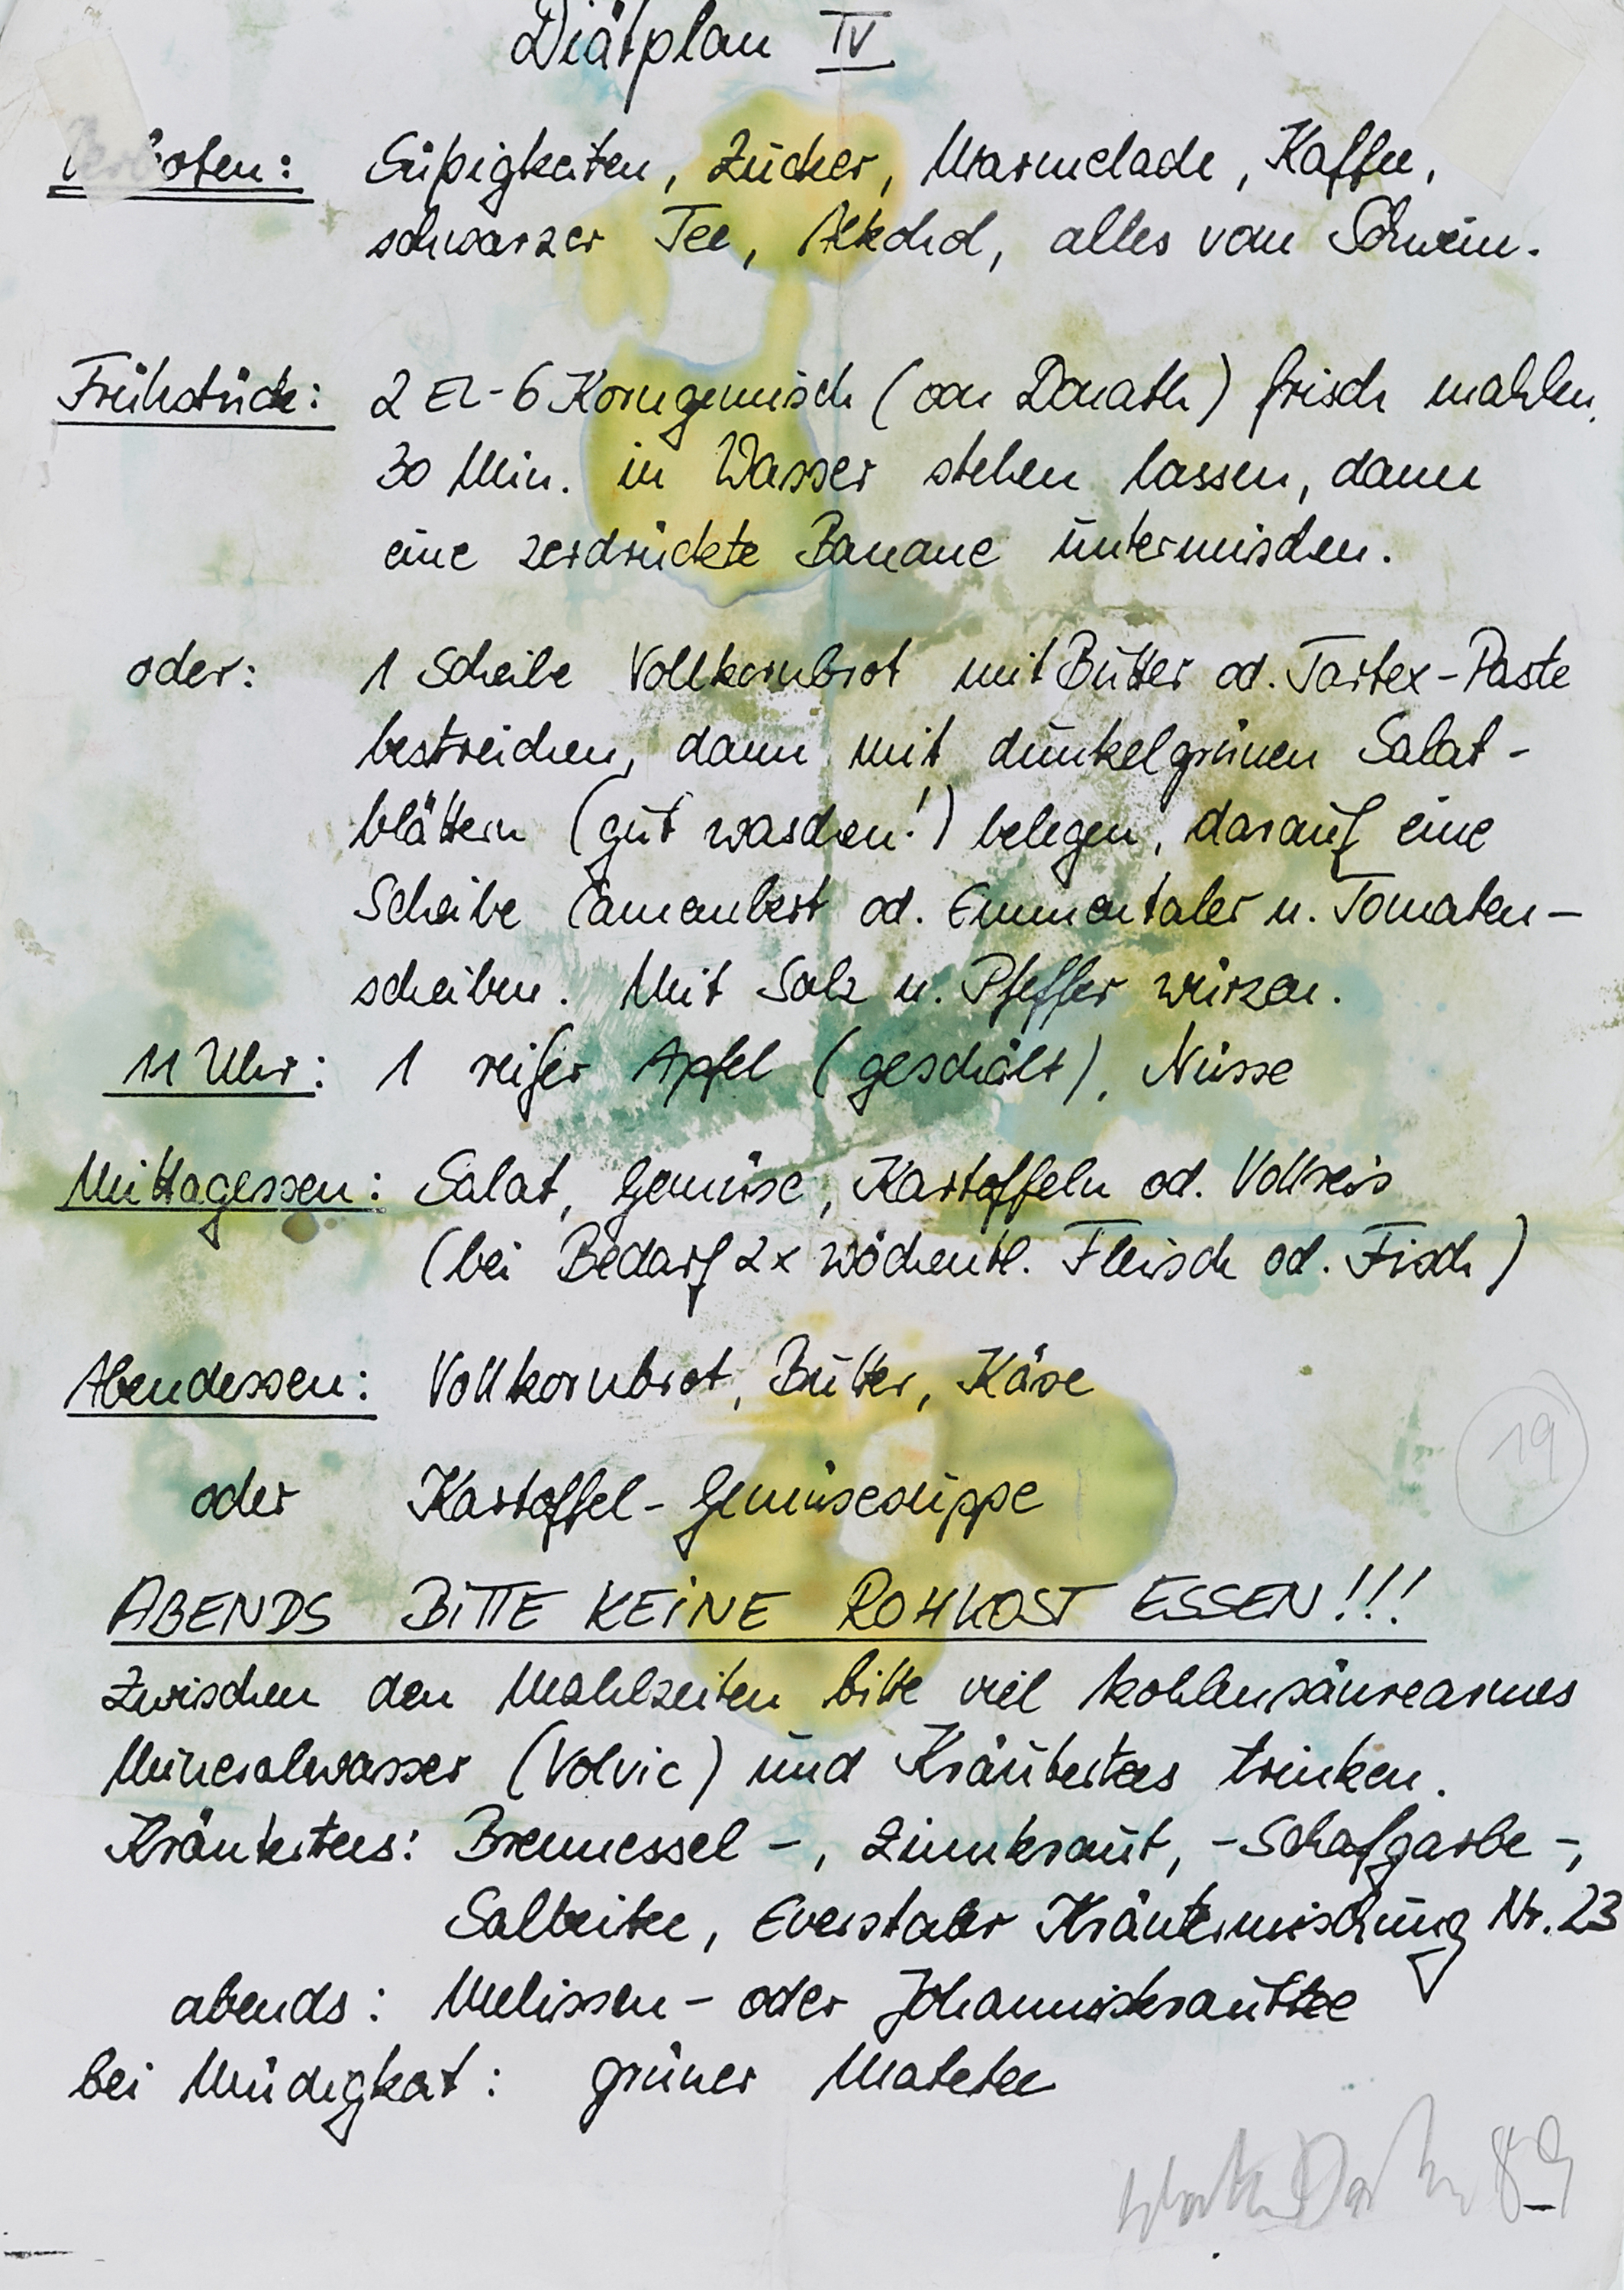 Diätplan IV
Verboten: Süßigkeiten, Zucker, Marmelade, Kaffee,
schwarzer Tee, Alkohol, alles vom Schwein.
Frühstück: 2 EL-6 Korngemisch (von Donath) frisch mahlen,
30 Min. in Wasser stehen lassen, dann
eine zerdrückte Banane untermischen.
oder: 1 Scheibe Vollkornbrot mit Butter od. Tartex-Paste
bestreichen, dann mit dunkelgrünen Salat-
blättern (gut waschen!) belegen, darauf eine
Scheibe Camembert od. Emmentaler u. Tomaten-
scheiben. Mit Salz u. Pfeffer würzen.
11 Uhr: 1 reifer Apfel (geschält), Nüsse
Mittagessen: Salat, Gemüse, Kartoffeln od. Vollreis
(bei Bedarf 2x wöchentl. Fleisch od. Fisch)
Abendessen: Vollkornbrot, Butter, Käse
oder Kartoffel-Gemüsesuppe
19
ABENDS BITTE KEINE ROHKOST ESSEN!!!
Zwischen den Mahlzeiten bitte viel kohlensäurearmes
Mineralwasser (Volvic) und Kräutertees trinken.
Kräutertees: Brennessel-, Zinnkraut, -Schafgarbe-,
Salbeitee, Everstaler Kräutermischung Nr. 23
abends: Melissen- oder Johanniskrauttee
bei Müdigkeit: grüner Matetee
89